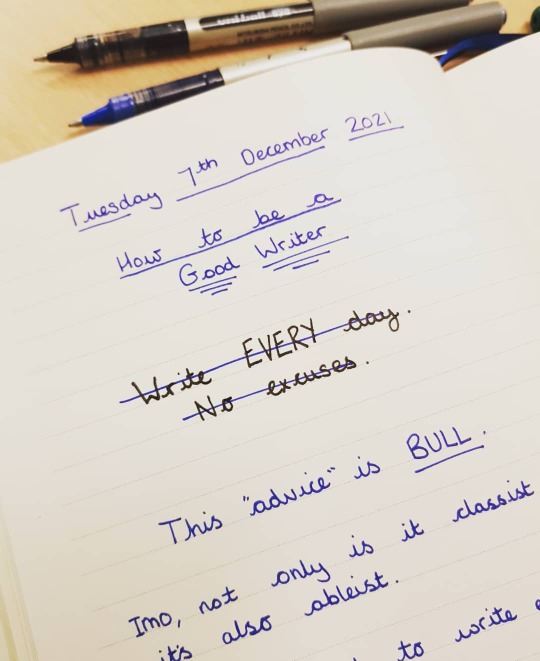 uni-ball
Tuesday 7th December 2021
How to be a
Good Writer
Write EVERY day.
No excuses.
This "advice" is BULL.
Imo, not only is it classist
it's also ableist.
to write